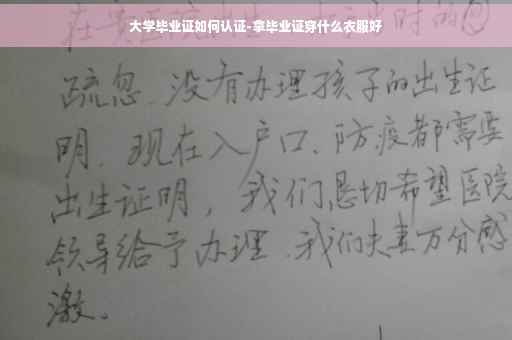 大学毕业证如何认证-拿毕业证穿什么衣服好
疏忽、没有办理孩子的出生证
明、现在入户口、防疫都需要
出生证明，我们恳切希望医院
领导给予办理、我们夫妻万分感
激。